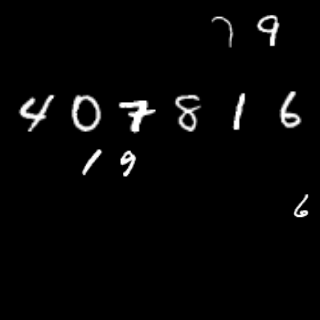 79
407816
19
6